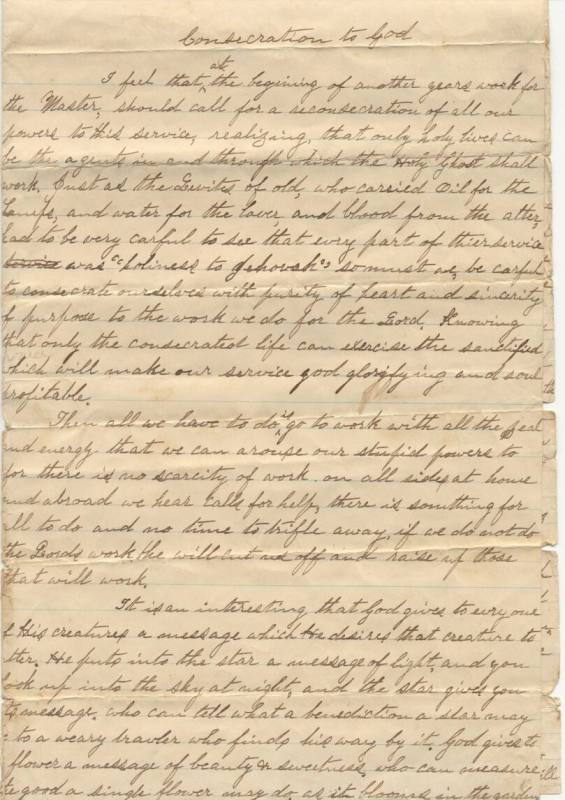 Consecration to God
I feel that at the begining of another years work for
the Master, should call for a reconsecration of all our
powers to His service, realizing, that only holy lives can
be the agents in and through which the Holy Ghost shall
work. Just as the Levites of old, who carried oil for the
Lamps, and water for the laver, and blood from the alter,
had to be very carful to see that evry part of thier service
service was "holiness to Jehovah" so must we, be carful
to consecrate ourselves with purity of heart and sincirity
of purpose to the work we do for the Lord. Knowing
that only the consecrated life can exercise the sanctified
which will make our service god glorifying and soul
profitable.
Then all we have to do is go to work with all the zeal
and energy that we can arouse our stupid powers to
for there is no scarcity of work on all sides, at home
and abroad we hear calls for help, there is somthing for
all to do and no time to trifle away, if we do not do
the Lords work he will cut us off and raise up those
that will work.
It is an interesting, that God gives to evry one
of His creatures a message which He desires that creature to
utter. He puts into the star a message of light, and you
look up into the sky at night, and the star gives you
its message. who can tell what a benediction a star may
to a weary travler who finds his way by it. God gives to
flower a message of beauty & sweetness, who can measure
the good a single flower may do as it blooms in the garden